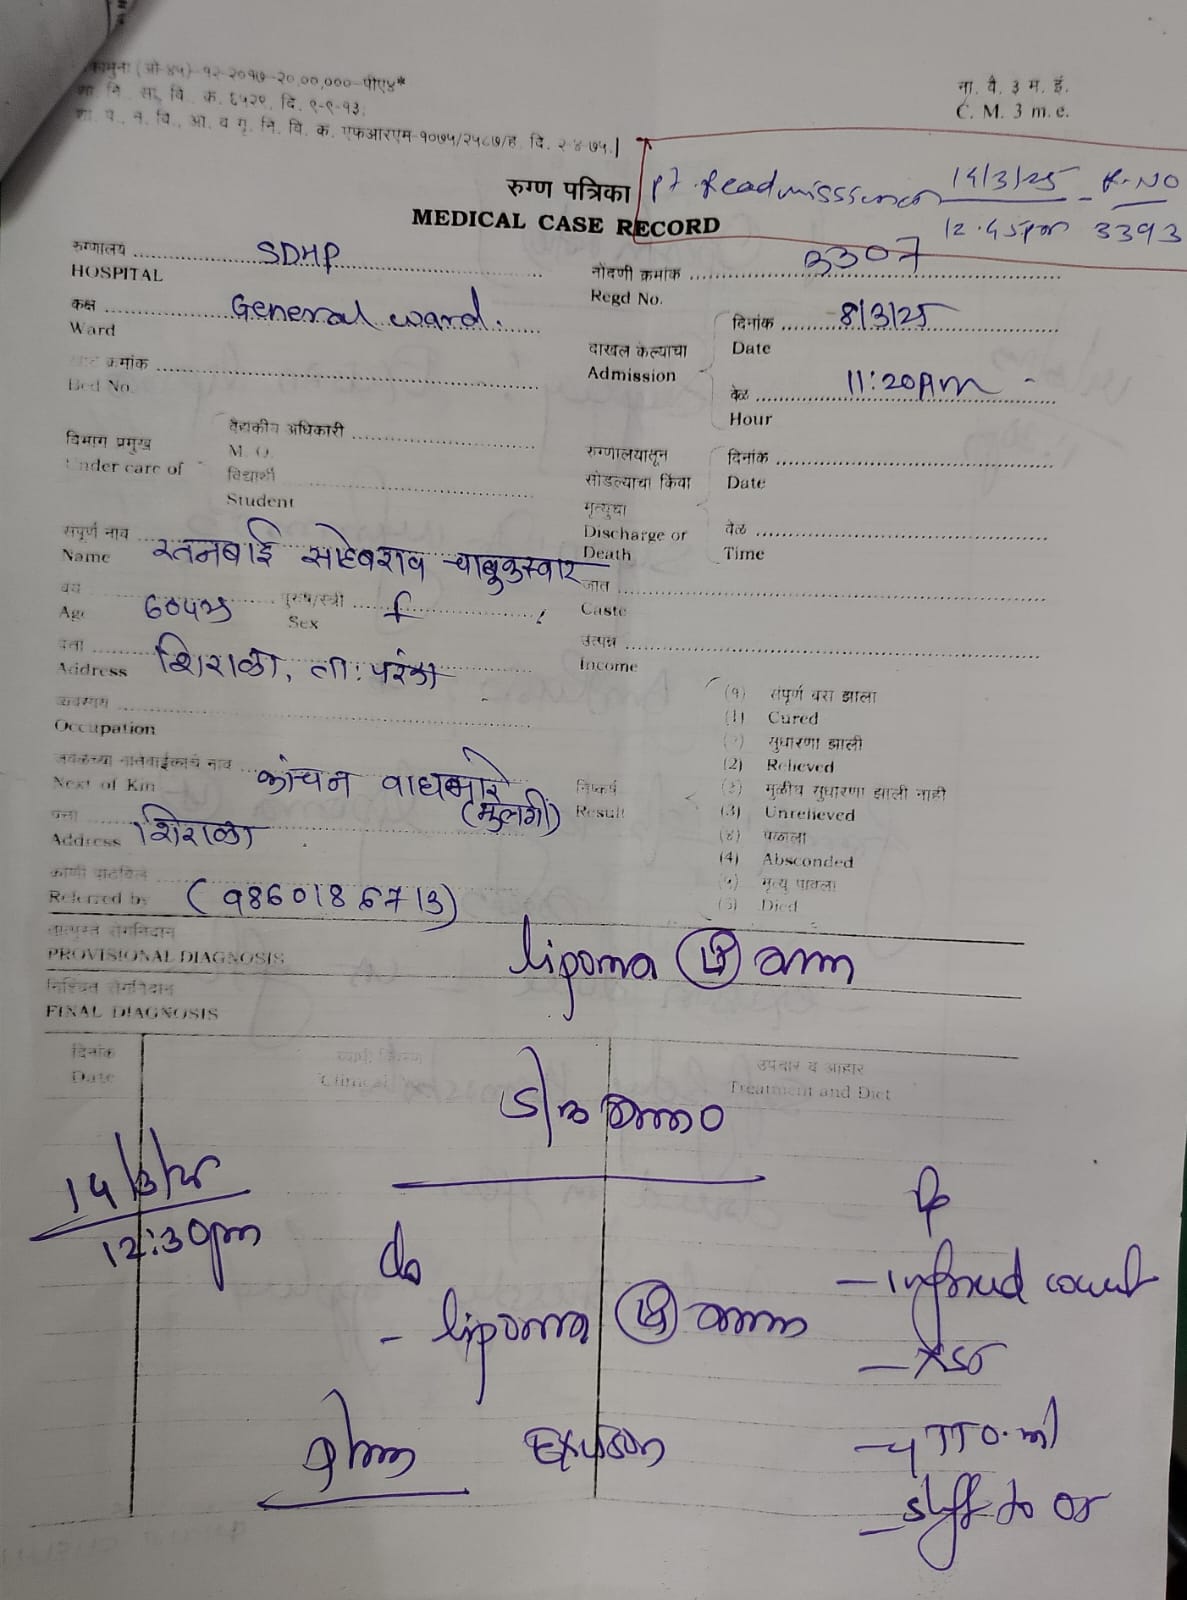 नमुना (ओ ४५)-१२-२०१७-२०,००,०००-पीए४*
शा. नि., सा. वि., क्र. ६५२१, दि. ९-९-१३,
शा. प., न. वि., आ. व गृ. नि. वि. क. एफआरएम-१०७५/२५८७/ह, दि. २-४-७५.
ना. वै. ३ म. ई.
C. M. 3 m. e.
रुग्ण पत्रिका
pt Readmission 14/3/25 - R.NO
12.45pm 3393
MEDICAL CASE RECORD
रुग्णालय SDHP
HOSPITAL
नोंदणी क्रमांक 3307
Regd No.
कक्ष General ward.
Ward
दाखल केल्याचा
Admission
दिनांक 8/3/25
Date
वेळ 11:20AM
Hour
खाट क्रमांक
Bed No.
विभाग प्रमुख
Under care of
वैद्यकीय अधिकारी
M. O.
विद्यार्थी
Student
रुग्णालयातून
सोडल्याचा किंवा
मृत्युचा
Discharge or
Death
दिनांक
Date
वेळ
Time
संपूर्ण नाव रतनबाई साहेबराव चाबुकस्वार
Name
जात
Caste
वय 60yrs पुरुष/स्त्री f
Age Sex
उत्पन्न
Income
पत्ता शिराळा, ता: परंडा
Address
व्यवसाय
Occupation
जवळच्या नातेवाईकाचे नाव कांचन वाघमारे
Next of Kin (मुलगी)
पत्ता शिराळा
Address
कोणी पाठविले
Referred by (9860186713)
निष्कर्ष
Result
(१) संपूर्ण बरा झाला
(1) Cured
(२) सुधारणा झाली
(2) Relieved
(३) मुळीच सुधारणा झाली नाही
(3) Unrelieved
(४) पळाला
(4) Absconded
(५) मृत्यु पावला
(5) Died
तात्पुरते रोगनिदान
PROVISIONAL DIAGNOSIS lipoma arm
निश्चित रोगनिदान
FINAL DIAGNOSIS
दिनांक
Date
Clinical
उपचार व आहार
Treatment and Diet
14/3/25
12:30pm
lipoma arm
Plan Excision
- informed consent
- XST
- TT 0.5 ml
- shift to OT